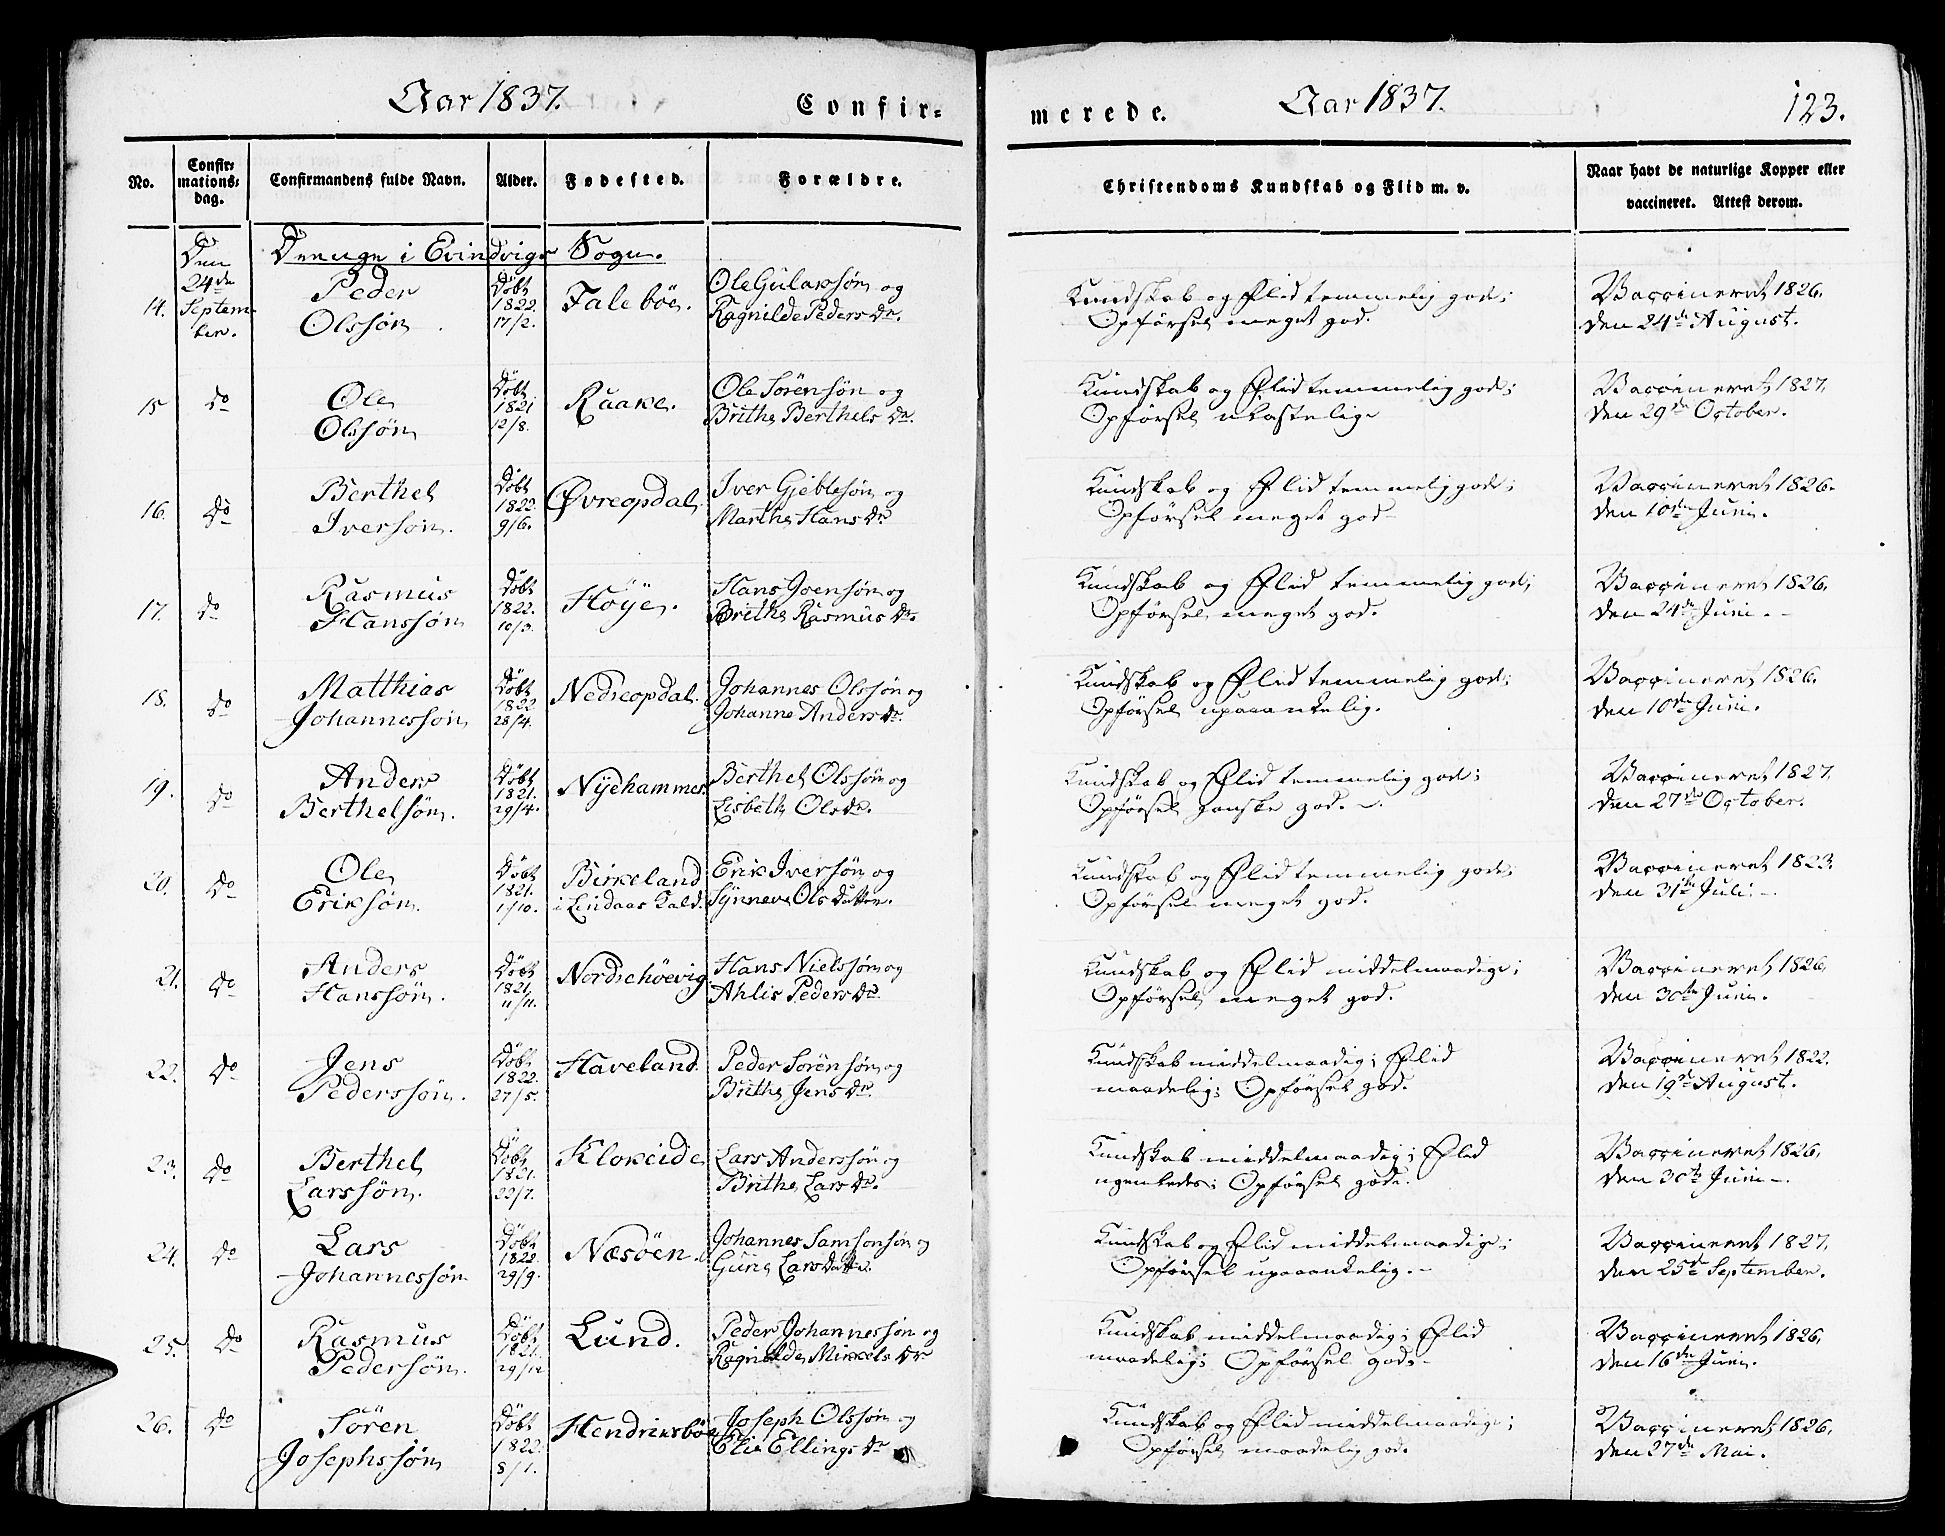 Aar 1837. Confir-
merede. Aar 1837. 123.
No. Confir-mations-dag. Confirmandens fulde Navn. Alder. Fødested. Forældre. Christendoms Kundskab og Flid m. v. Naar havt de naturlige Kopper eller vaccineret. Attest derom.
Drenge i Evindvigs Sogn.
14. Den 24de Septem-ber. Peder Olssøn. Døbt 1822. 17/2. Faleböe. Ole Gulakssøn og Ragnilde Peders Dr. Kundskab og Flid temmelig god; Opførsel meget god. Vaccineret 1826. den 24de August.
15 Do Ole Olssøn Døbt 1821 12/8. Raake. Ole Sörensøn og Brithe Berthels Dr. Kundskab og Flid temmelig god; Opførsel ulastelig Vaccineret 1827. den 29de October.
16. Do Berthel Iversøn. Døbt 1822. 9/6. Øvreopdal. Iver Gjeblesøn og Marthe Hans Dr. Kundskab og Flid temmelig god; Opførsel meget god Vaccineret 1826. den 10de Juni.
17. Do Rasmus Hanssøn Døbt 1822. 10/3. Höye. Hans Joensøn og Brithe Rasmus Dr. Kundskab og Flid temmelig god; Opførsel meget god. Vaccineret 1826. den 24de Juni.
18. Do Matthias Johannessøn Døbt 1822 28/4. Nedreopdal. Johannes Olssøn og Johanne Anders Dr. Kundskab og Flid temmelig god; Opførsel upaaankelig. Vaccineret 1826. den 10de Juni.
19. Do Anders Berthelsøn. Døbt 1821. 29/4. Nÿehammer. Berthel Olssøn og Lisbeth Ols Dr. Kundskab og Flid temmelig god; Opførsel ganske god. Vaccineret 1827. den 27de October.
20. Do Ole Eriksøn. Døbt 1821. 1/10. Birkeland i Lindaas Gald. Erik Iversøn og Synneve Ols Datter. Kundskab og Flid temmelig god; Opførsel meget god. Vaccineret 1823. den 31te Juli.
21. Do Anders Hanssøn. Døbt 1821. 11/11. Nordrehöevig Hans Nielssøn og Ahlis Peders Dr. Kundskab og Flid middelmaadig; Opførsel meget god. Vaccineret 1826. den 30te Juni.
22. Do Jens Pederssøn. Døbt 1822. 27/5. Haveland. Peder Sörensøn og Brithe Jens Dr. Kundskab middelmaadig; Flid maadelig; Opførsel god. Vaccineret 1822. den 19de August.
23. Do Berthel Larssøn. Døbt 1821. 22/7. Klokeide Lars Anderssøn og Brithe Lars Dr. Kundskab middelmaadig; Flid Opførsel god. Vaccineret 1826. den 30te Juni.
24. Do Lars Johannessøn Døbt 1822. 29/9. Næsöen. Johannes Samsonsøn og Guri Lars Datter. Kundskab og Flid middelmaadig; Opførsel upaaankelig. Vaccineret 1827. den 25de September.
25. Do Rasmus Pedersøn. Døbt 1821. 29/12 Lund. Peder Johannessøn og Ragnilde Mikkels Dr Kundskab middelmaadig; Flid maadelig; Opførsel god. Vaccineret 1826. den 16de Juni.
26. Do Sören Josephssøn Døbt 1822. 8/1. Hendriksböe Joseph Olssøn og Elie Ellings Dr Kundskab og Flid middelmaadig; Opførsel maadelig god. Vaccineret 1826. den 27de Mai.